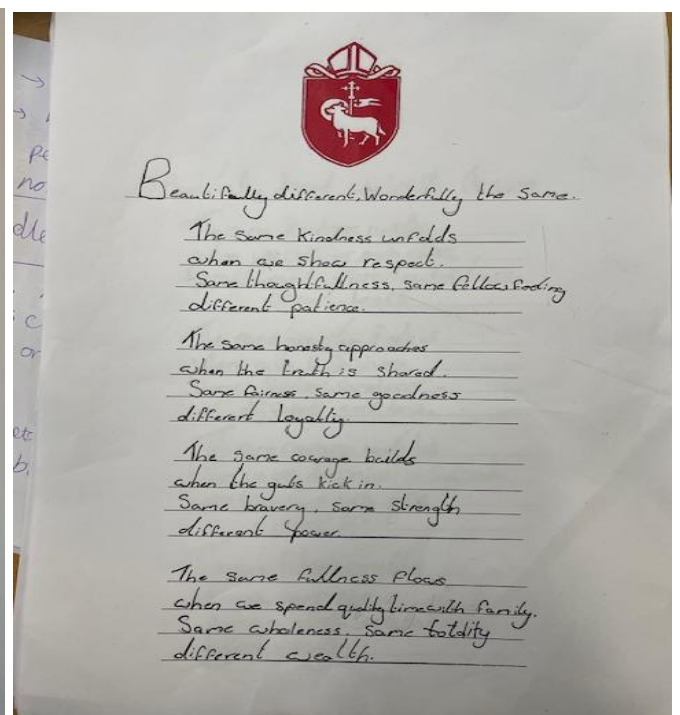 Beautifully different, Wonderfully the same.
The same kindness unfolds
when we show respect.
Same thoughtfullness, same fellow feeling
different patience.
The same honesty approaches
when the truth is shared.
Same fairness, same goodness
different loyalty.
The same courage builds
when the guts kick in.
Same bravery, same strength
different power.
The same fullness flows
when we spend quality time with family.
Same wholeness, same totality
different wealth.
pe
no
dle
c
or
etc
b.